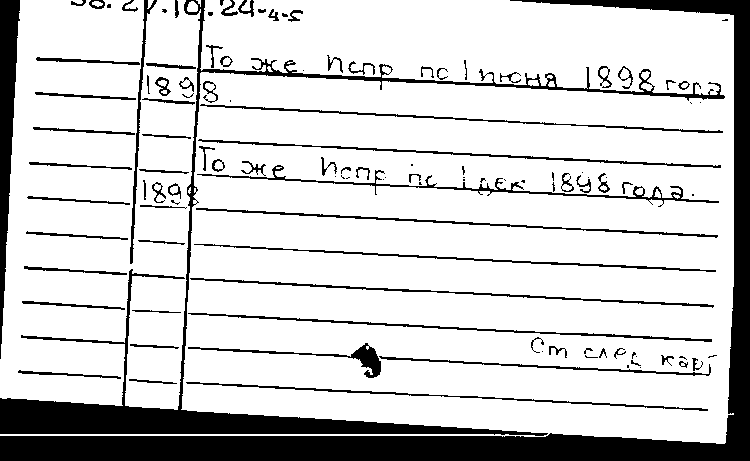 То же испр по 1 июня 1898 года
1898.
То же испр по 1 дек 1898 года.
1898
См след карт